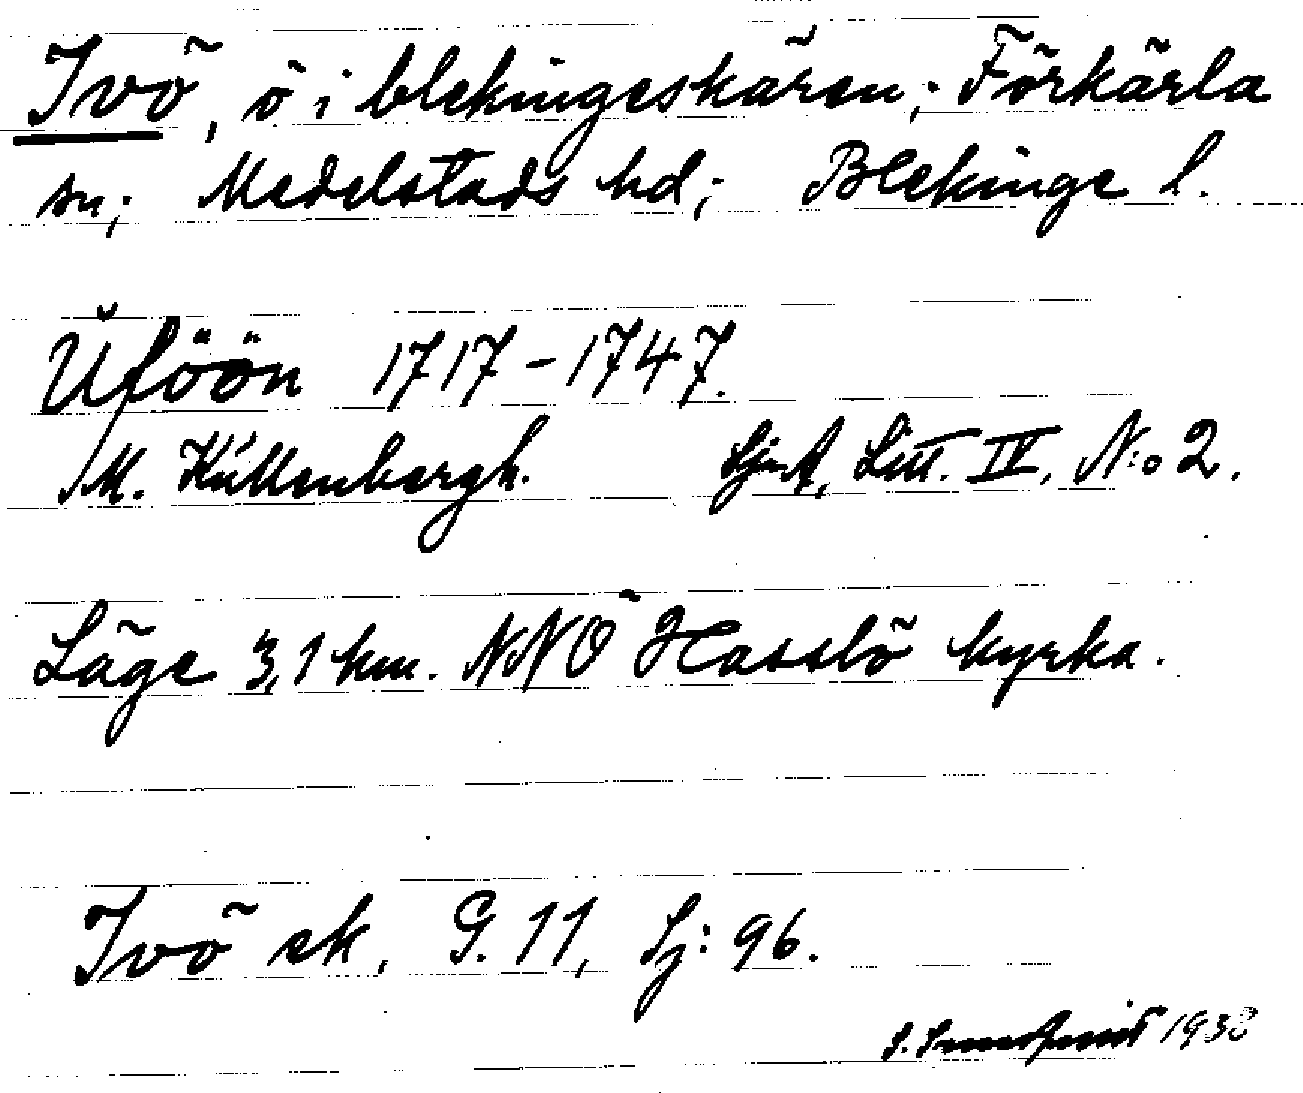 Ivö, ö i blekingeskären; Förkärla
sn; Medelstads hd; Blekinge l.
Ŭföön 1717-1747.
M. Küllenbergh. SjmA, Litt. IV, N:o 2.
Läge 3,1 km. NNÖ Hasslö kyrka.
Ivö ek. G. 11, Sj: 96.
S. 1938